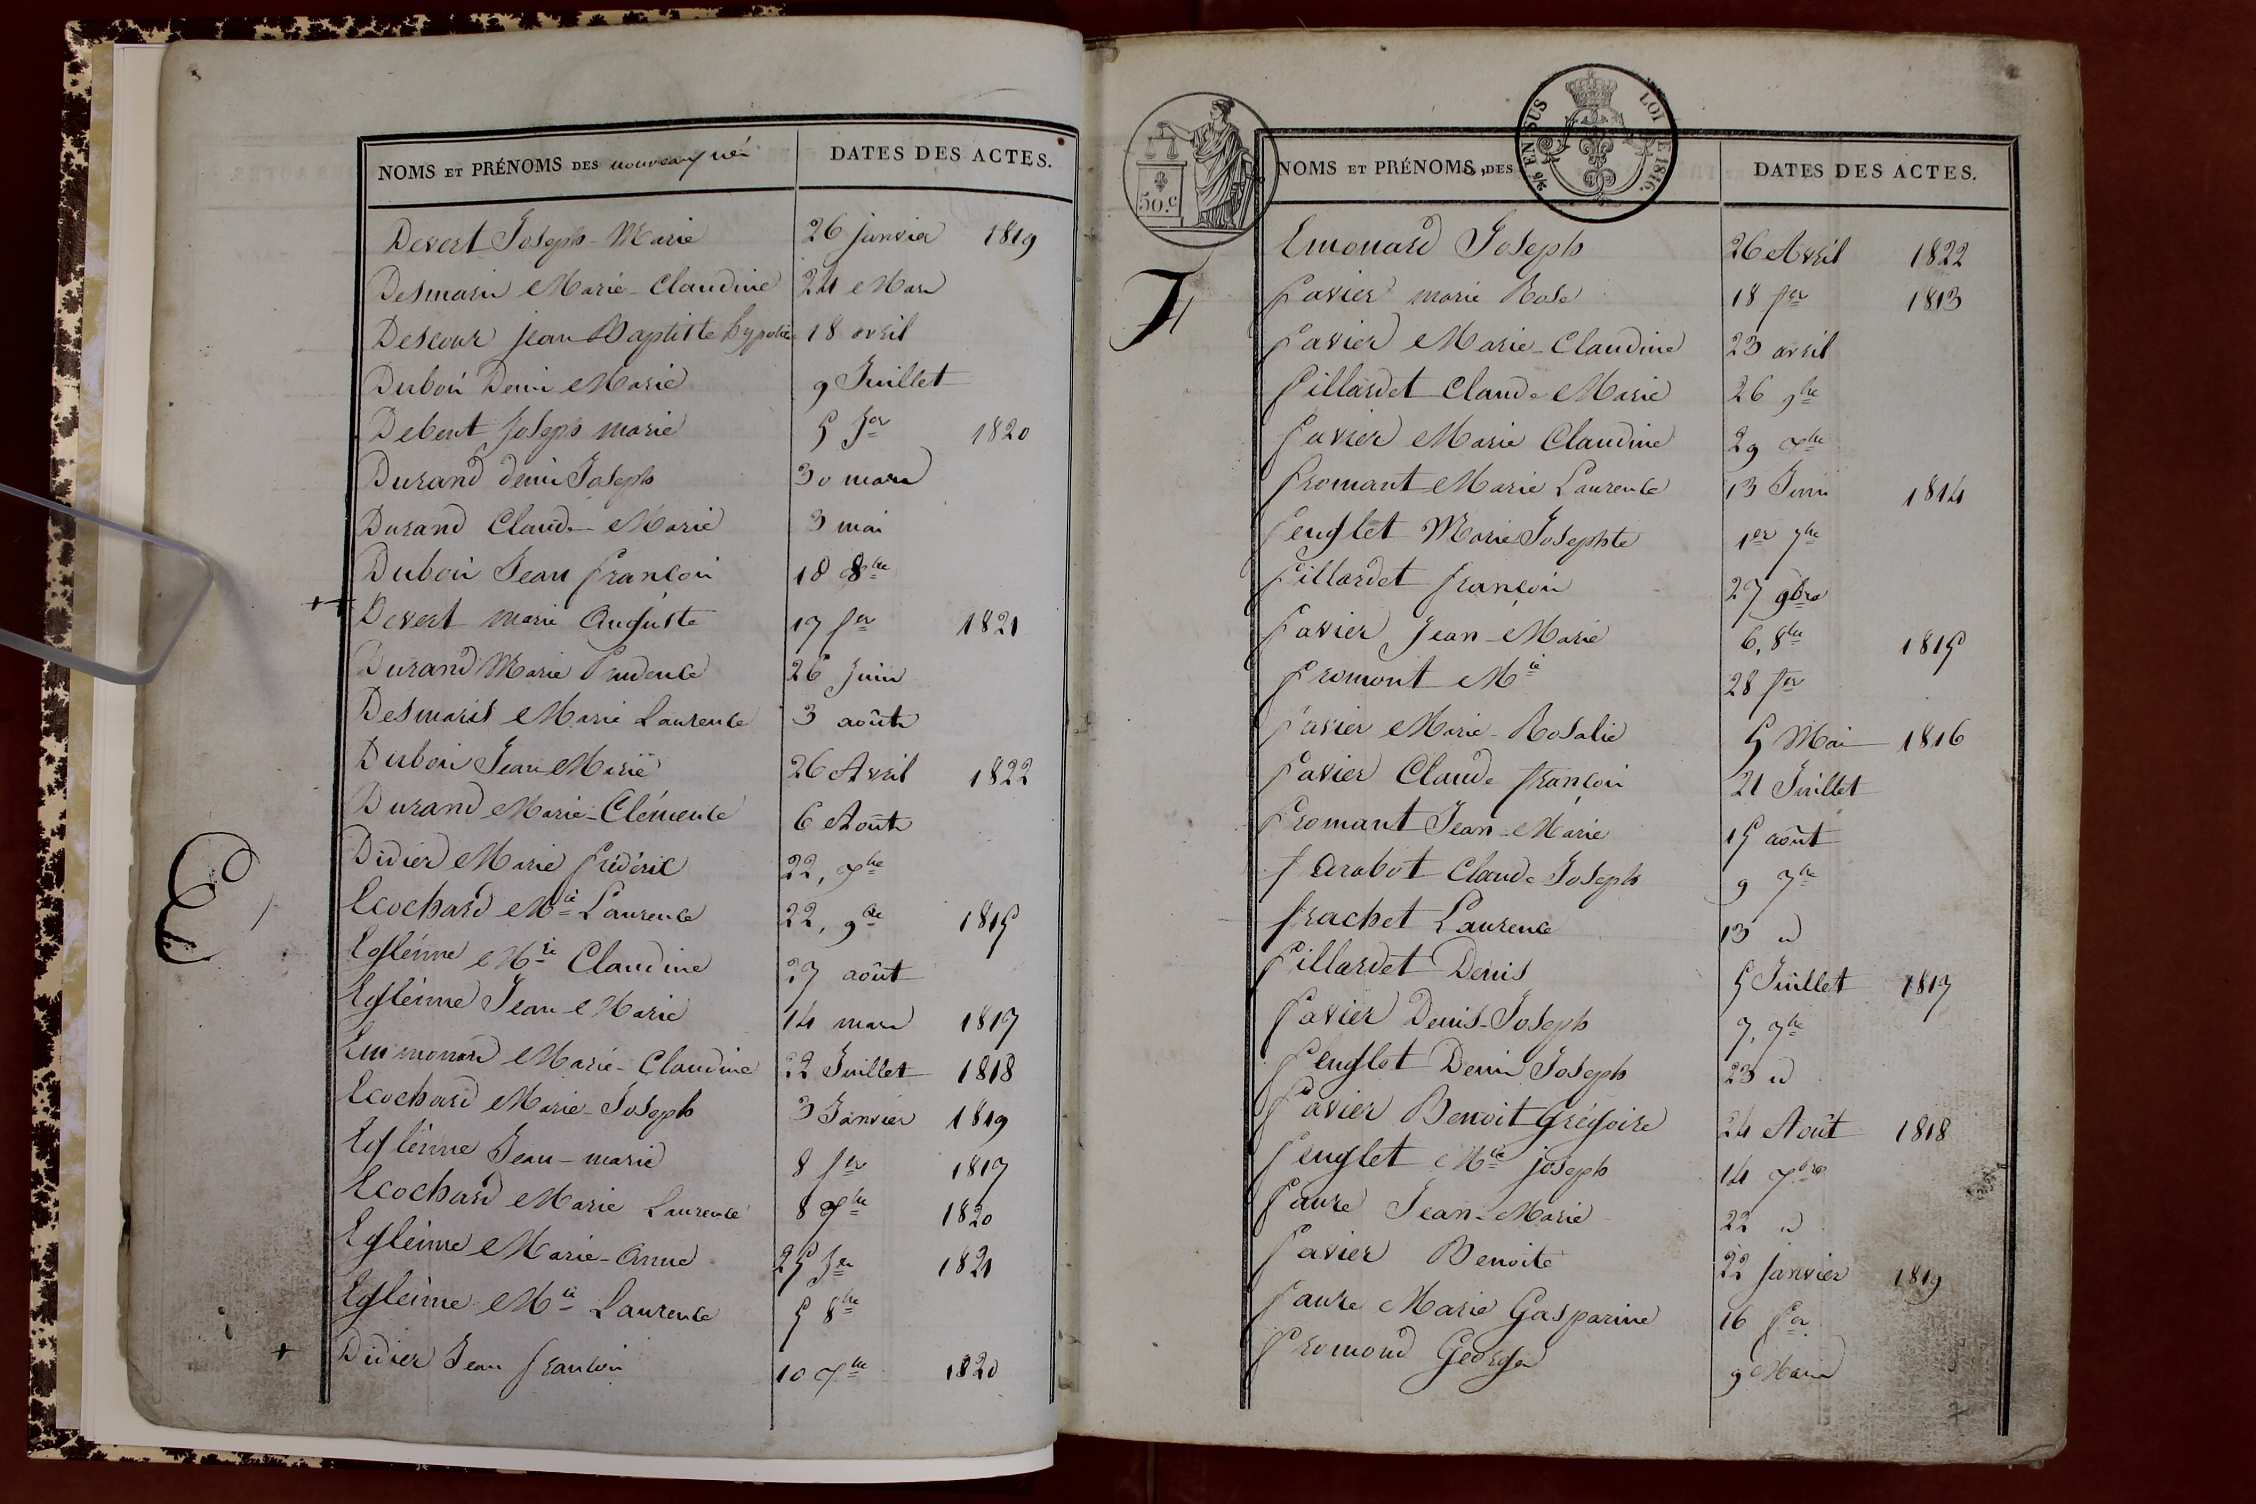 NOMS ET PRÉNOMS DES nouveaux nés DATES DES ACTES.
Devert Joseph-Marie 26 janvier 1819
Desmaris Marie-Claudine 24 Mars
Descour jean Baptiste hypolite 18 avril
Dubois Denis Marie 9 Juillet
Debout Joseph marie 5 fer 1820
Durand denis Joseph 30 mars
Durand Claude Marie 3 mai
Dubois Jean françois 18 8bre
Devert marie Auguste 17 fer 1821
Durand Marie Prudence 26 Juin
Desmaris Marie Laurence 3 août
Dubois Jean Marie 26 Avril 1822
Durand Marie-Clémence 6 Août
Didier Marie frédéric 22, 7bre
E
Ecochard Mie Laurence 22, 9bre 1815
Eglénne Mie Claudine 27 août
Eglénne Jean Marie 14 mars 1817
Emmonard Marie-Claudine 22 Juillet 1818
Ecochard Marie-Joseph 3 Janvier 1819
Eglénne Jean-marie 8 fer 1817
Ecochard Marie Laurence 8 7bre 1820
Egléinne Marie-Anne 25 fer 1821
Egléinne Mie Laurence 5 8bre
Didier Jean françois 10 7bre 1820
NOMS ET PRÉNOMS DES DATES DES ACTES.
50.c
EN SUS LOI DE 1816.
Emonard Joseph 26 Avril 1822
F
favier marie Rose 18 fer 1813
favier Marie-Claudine 23 avril
fillardet Claude Marie 26 9bre
favier Marie Claudine 29 7bre
fromant Marie Laurence 13 Juin 1814
fenglet Marie Josephte 1er 7bre
fillardet françois 27 9bre
favier Jean-Marie 6, 8bre 1815
fromont Mie 28 fer
favier Marie-Rosalie 5 Mai 1816
favier Claude françois 21 Juillet
fromant Jean-Marie 15 août
ferabot Claude Joseph 9 7bre
frachet Laurence 13 d
fillardet Denis 5 Juillet 1817
favier Denis-Joseph 7, 7bre
fenglet Denis Joseph 23 d
favier Benoit Grégoire 24 Août 1818
fenglet Mie joseph 14 7bre
faure Jean-Marie 22 d
favier Benoite 22 janvier 1819
faure Marie Gasparine 16 fer
fromond George 9 Mars